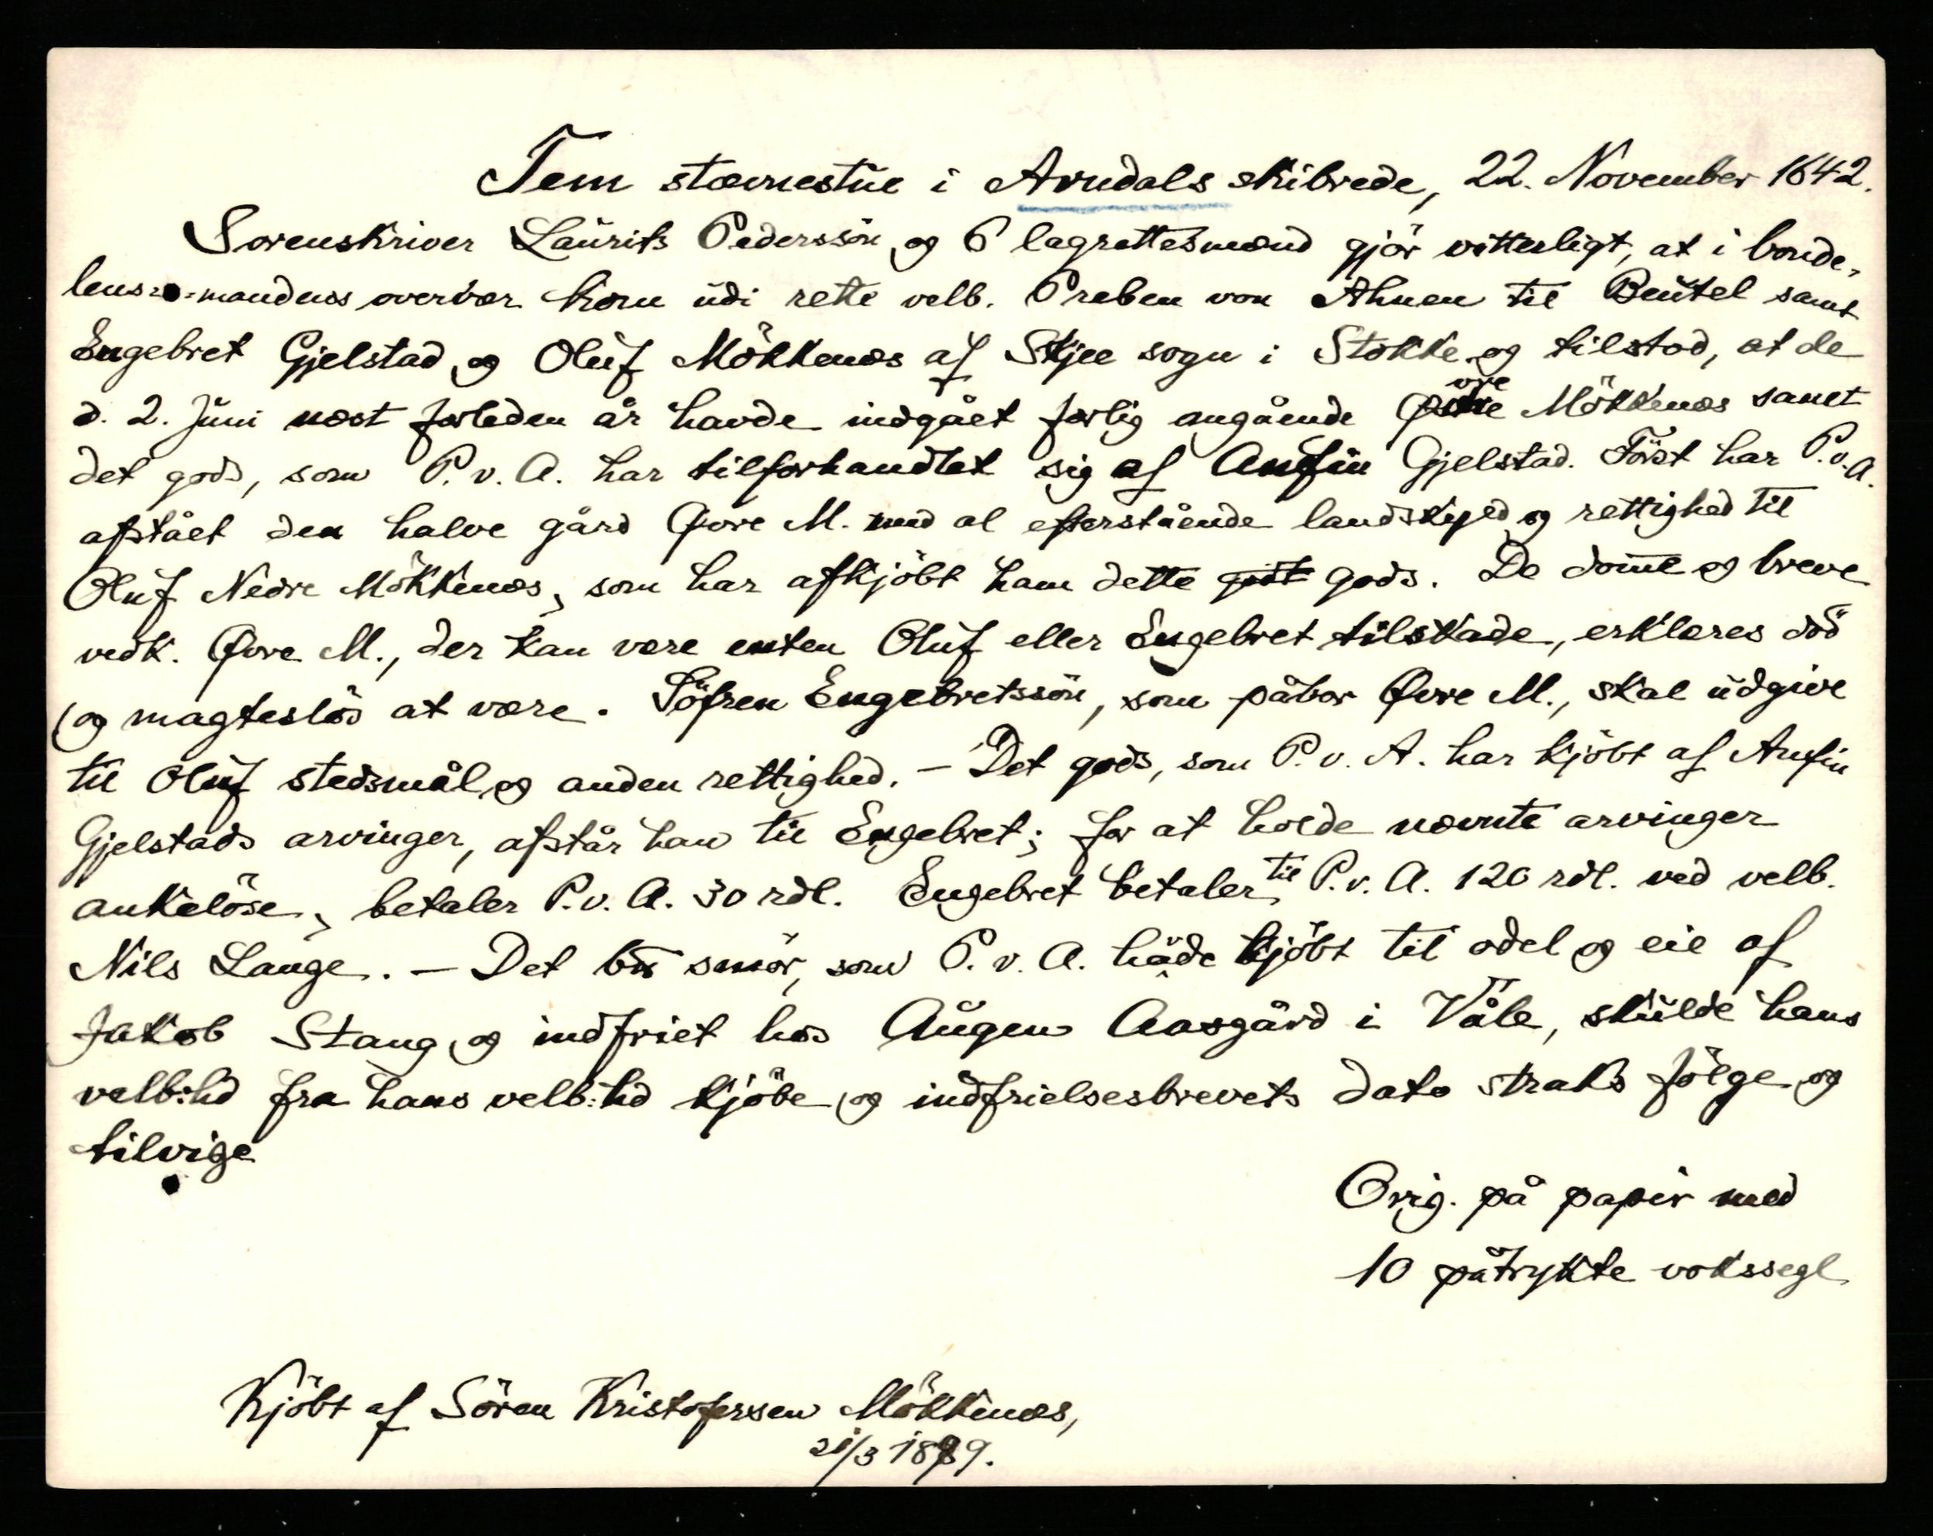 Tem stævnestue i Arndals skibrede, 22. November 1642.
Sorenskriver Laurits Pederssön og 6 lagrettesmænd gjör vitterligt, at i bonde-
lens-mandens overvær kom udi rette velb. Preben von Ahnen til Beutel samt
Engebret Gjelstad og Oluf Mökkenæs af Skjee sogn i Stokke og tilstod, at de
d. 2. Juni næst forleden år havde indgået forlig angående Øvre Mökkenæs samt
det gods, som P. v. A. har tilforhandlet sig af Anfin Gjelstad. Först har P. v. A.
afstået den halve gård Øvre M. med al efterstående landskyld og rettighed til
Oluf Nedre Mökkenæs, som har afkjöbt ham dette gods. De dom̅e og breve
vedk. Øvre M., der kan være enten Oluf eller Engebret tilskade, erklæres död
og magteslös at være. Söfren Engebretssön, som påbor Øvre M., skal udgive
til Oluf stedsmål og anden rettighed. – Det gods, som P. v. A. har kjöbt af Anfin
Gjelstads arvinger, afstår han til Engebret; for at holde nævnte arvinger
ankelöse, betaler P. v. A. 30 rdl. Engebret betaler til P. v. A. 120 rdl. ved velb.
Nils Lange. – Det smör, som P. v. A. håde kjöbt til odel og eie af
Jakob Stang og indfriet hos Augen Aasgård i Våle, skulde hans
velb:hd fra hans velb:hd kjöbe og indfrielsesbrevets dato straks fölge og
tilvige
Orig. på papir med
10 påtrykte vokssegl
Kjöbt af Sören Kristofersen Mökkenæs,
21/3 1899.